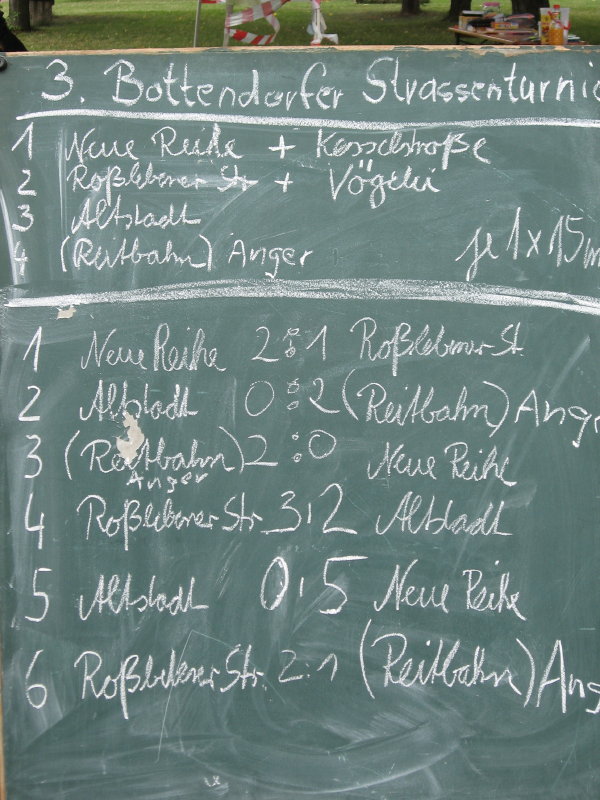 3. Bottendorfer Strassenturnie
1 Neue Reihe + Kesselstraße
2 Roßlebener Str + Vögelei
3 Altstadt
4 (Reitbahn) Anger je 1x15m
1 Neue Reihe 2:1 Roßlebener St.
2 Altstadt 0:2 (Reitbahn) Anger
3 (Reitbahn) 2:0 Neue Reihe
Anger
4 Roßlebener Str. 3:2 Altstadt
5 Altstadt 0:5 Neue Reihe
6 Roßlebener Str. 2:1 (Reitbahn) Ang